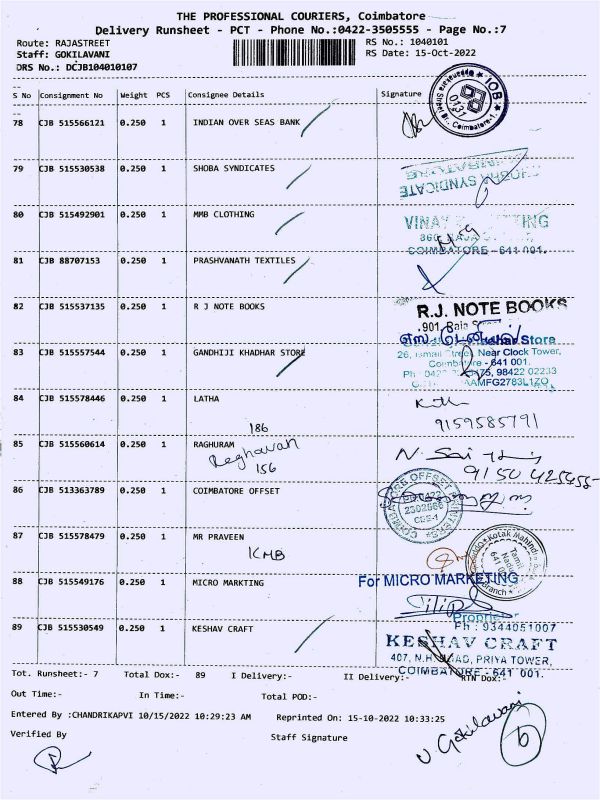 THE PROFESSIONAL COURIERS, Coimbatore
Delivery Runsheet - PCT - Phone No.:0422-3505555 - Page No.:7
Route: RAJASTREET RS No.: 1040101
Staff: GOKILAVANI RS Date: 15-Oct-2022
DRS No.: DCJB104010107
S No Consignment No Weight PCS Consignee Details Signature
IOB
0131
Coimbatore-1.
78 CJB 515566121 0.250 1 INDIAN OVER SEAS BANK
79 CJB 515530538 0.250 1 SHOBA SYNDICATES
SYNDICATE
80 CJB 515492901 0.250 1 MMB CLOTHING
VINAY
COIMBATORE - 641 001.
81 CJB 88707153 0.250 1 PRASHVANATH TEXTILES
82 CJB 515537135 0.250 1 R J NOTE BOOKS
R.J. NOTE BOOKS
901, Raja
Store
83 CJB 515557544 0.250 1 GANDHIJI KHADHAR STORE
26, Ismail Street, Near Clock Tower,
Coimbatore - 641 001.
98422 02233
AAMFG2783L1ZO
84 CJB 515578446 0.250 1 LATHA
9159585791
186
85 CJB 515560614 0.250 1 RAGHURAM
Raghavan
156
N. Sai
86 CJB 513363789 0.250 1 COIMBATORE OFFSET
COIMBATORE OFFSET PRINTERS
2302566
CBE-1
87 CJB 515578479 0.250 1 MR PRAVEEN
KMB
Kotak Mahindra
Tamil
Nadu
641 0
Branch
88 CJB 515549176 0.250 1 MICRO MARKTING
For MICRO MARKETING
Proprietor
Ph : 9344051007
89 CJB 515530549 0.250 1 KESHAV CRAFT
KESHAV CRAFT
407, N.H. ROAD, PRIYA TOWER,
COIMBATORE - 641 001.
Tot. Runsheet:- 7 Total Dox:- 89 I Delivery:- II Delivery:- RTN Dox:-
Out Time:- In Time:- Total POD:-
Entered By :CHANDRIKAPVI 10/15/2022 10:29:23 AM Reprinted On: 15-10-2022 10:33:25
Verified By Staff Signature
V. Gokilavani
6